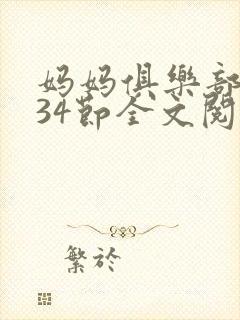 妈妈俱樂部
34節全文閱
繁於